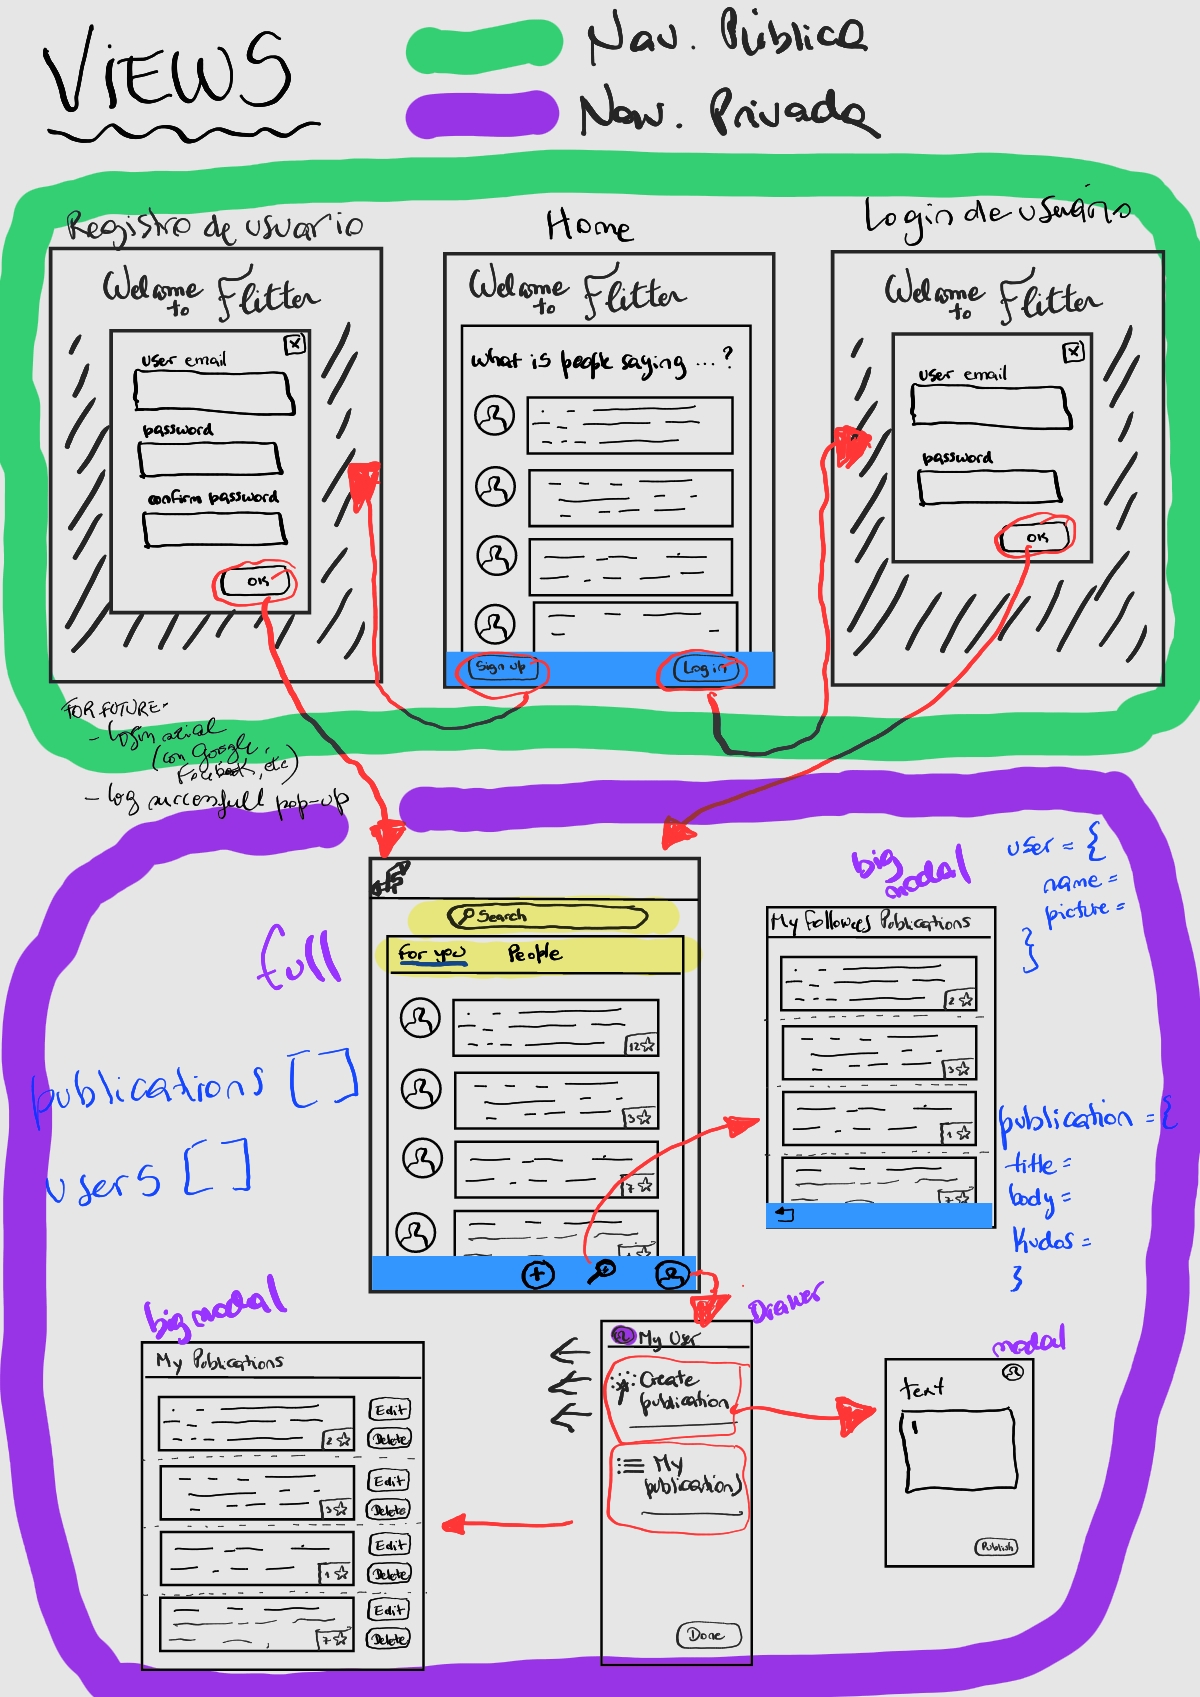 VIEWS
Nav. Pública
Nav. Privada
Registro de usuario
Welcome to Flitter
user email
password
confirm password
OK
Home
Welcome to Flitter
What is people saying ...?
Sign up
Log in
Login de usuário
Welcome to Flitter
user email
password
OK
FOR FUTURE-
- Login social
(con Google,
Facebook, etc)
- log successfull pop-up
full
publications []
users []
Search
For you
People
12
3
7
big modal
My Followers Publications
2
3
1
7
user = {
name =
picture =
}
publication = {
title =
body =
Kudos =
}
big modal
My Publications
2
Edit
Delete
3
Edit
Delete
1
Edit
Delete
7
Edit
Delete
Drawer
My User
Create
publication
My
publications
Done
modal
text
Publish